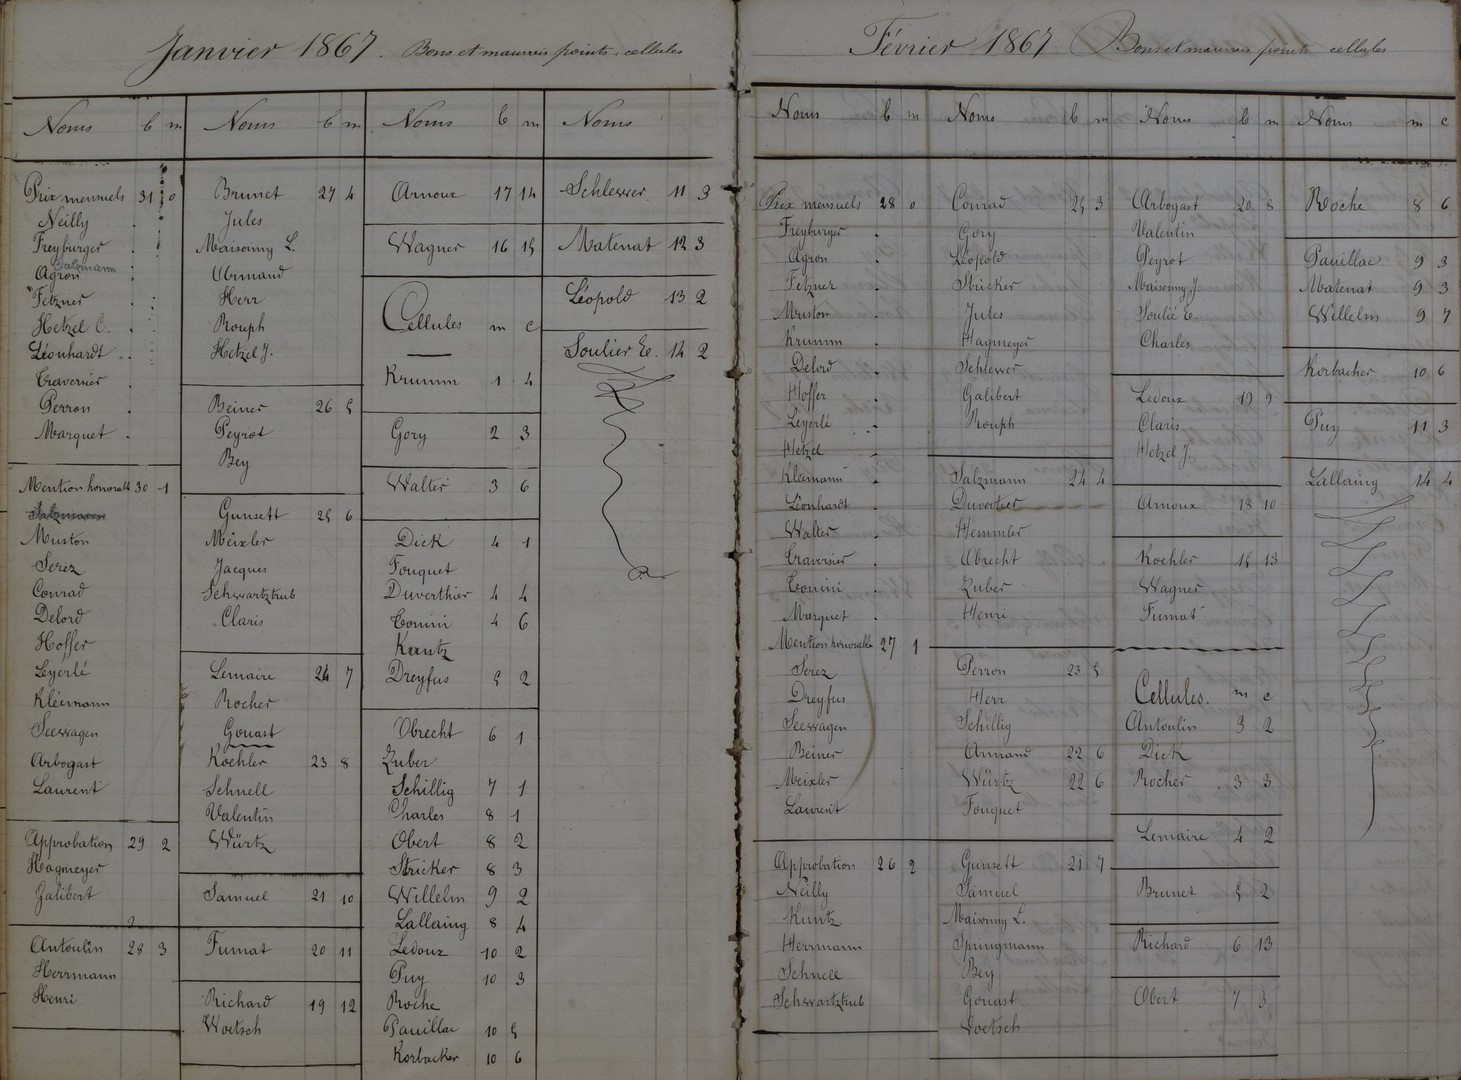 Janvier 1867. Bons et mauvais points. cellules
Noms b m
Prix mensuels 31 0
Neilly
Freyburger
Salzmann
Agron
Fetzner
Hetzel C.
Léonhardt
Traversier
Perron
Marquet
Mention honorable 30 1
Salzmann
Muston
Serez
Conrad
Delord
Hoffer
Leyerlé
Kléemann
Seewagen
Arbogast
Laurent
Approbation 29 2
Hagmeyer
Galibert
2
Antoulin 28 3
Herrmann
Henri
Noms b m
Brunet 27 4
Jules
Maisonny L.
Armand
Herr
Rouph
Hetzel J.
Beiner 26 5
Peyrot
Bey
Gunsett 25 6
Meixler
Jacques
Schwartztrub
Claris
Lemaire 24 7
Rocher
Gouast
Koehler 23 8
Schnell
Valentin
Würtz
Samuel 21 10
Fumat 20 11
Richard 19 12
Woetsch
Noms b m
Arnoux 17 14
Wagner 16 15
Cellules m c
Krumm 1 4
Gory 2 3
Walter 3 6
Dick 4 1
Fouquet
Duverthier 4 4
Tonini 4 6
Kuntz
Dreyfus 5 2
Obrecht 6 1
Zuber
Schillig 7 1
Charles 8 1
Obert 8 2
Stricker 8 3
Willelm 9 2
Lallaing 8 4
Ledoux 10 2
Puy 10 3
Roche
Pauillac 10 5
Korbacker 10 6
Noms
Schlesser 11 3
Matenat 12 3
Léopold 13 2
Soulier E. 14 2
Février 1867 Bons et mauvais points cellules
Noms b m
Prix mensuels 28 0
Freyburger
Agron
Fetzner
Muston
Krumm
Delord
Hoffer
Leyerlé
Hetzel
Kléemann
Léonhardt
Walter
Traversier
Tonini
Marquet
Mention honorable 27 1
Serez
Dreyfus
Seewagen
Beiner
Meixler
Laurent
Approbation 26 2
Neilly
Kuntz
Herrmann
Schnell
Schwartztrub
Noms b m
Conrad 25 3
Gory
Léopold
Stricker
Jules
Hagmeyer
Schlesser
Galibert
Rouph
Salzmann 24 4
Duverthier
Hemmler
Obrecht
Zuber
Henri
Perron 23 5
Herr
Schillig
Armand 22 6
Würtz 22 6
Fouquet
Gunsett 21 7
Samuel
Maisonny L.
Springmann
Bey
Gouast
Voetsch
Noms b m
Arbogast 20 8
Valentin
Peyrot
Maisonny J.
Soulié E.
Charles
Ledoux 19 9
Claris
Hetzel J.
Arnoux 18 10
Koehler 15 13
Wagner
Fumat
Cellules. m c
Antoulin 3 2
Dick
Rocher 3 3
Lemaire 4 2
Brunet 5 2
Richard 6 13
Obert 7 3
Noms m c
Roche 8 6
Pauillac 9 3
Matenat 9 3
Willelm 9 7
Korbacher 10 6
Puy 11 3
Lallaing 14 4